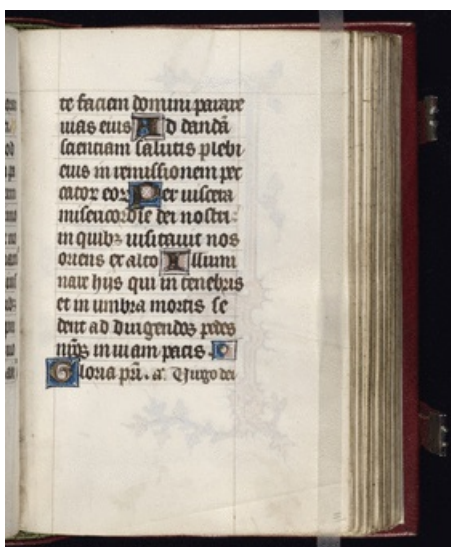 te faciem domini parare
uias eius Ad dandā
scientiam salutis plebi
eius in remissionem pec
cator eor Per uiscera
misericordie dei nostri:
in quibꝫ uisitauit nos
oriens ex alto Illumi
nare hijs qui in tenebris
et in umbra mortis se
dent ad dirigendos pedes
nr̄os in uiam pacis.
Gloria pr̄i. a. Virgo dei